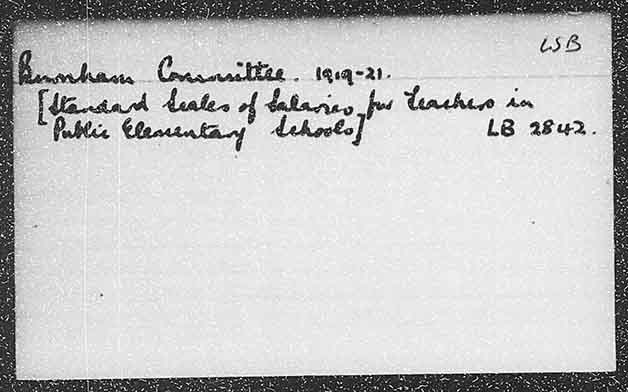 LSB
Burnham Committee. 1919-21.
[Standard Scales of Salaries for Teachers in
Public Elementary Schools]
LB 2842.